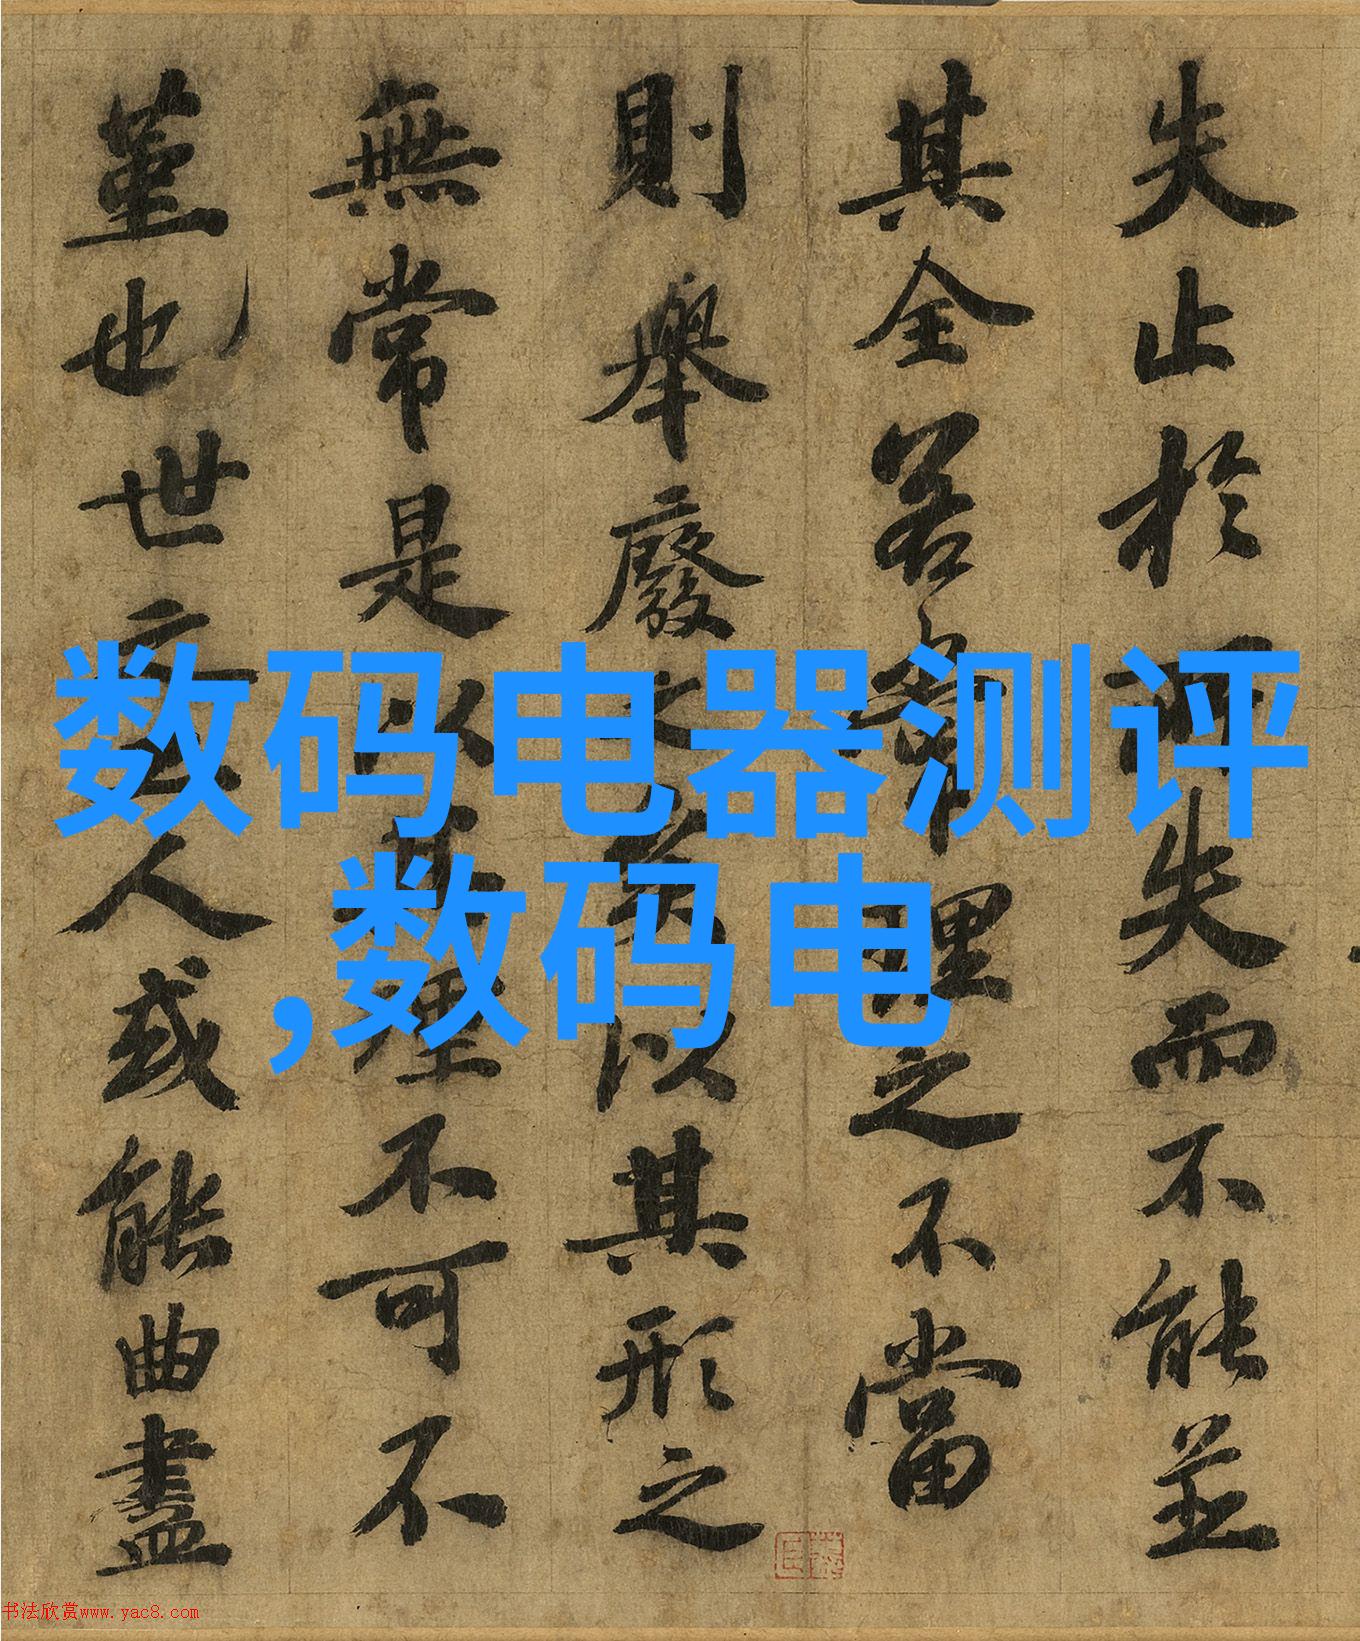 失止於所失而不能並
其全若常理之不當
則舉廢之矣以其形之
無常是以其理不可不
堇也世之工人或能曲盡
数码电器测评
,数码电
书法欣赏www.yac8.com